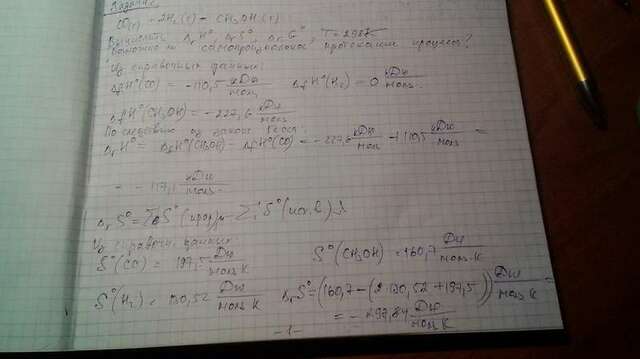 Задание
CO(г) + 2H₂(г) = CH₃OH(г)
Вычислить ΔrH°, ΔrS°, ΔrG°, T=298K
возможно ли самопроизвольное протекание процесса?
Из справочных данных:
ΔfH°(CO) = -110,5 кДж/моль ΔfH°(H₂) = 0 кДж/моль
ΔfH°(CH₃OH) = -227,6 кДж/моль
По следствию из закона Гесса:
ΔrH° = ΔfH°(CH₃OH) - ΔfH°(CO) = -227,6 кДж/моль +110,5 кДж/моль =
= -117,1 кДж/моль
ΔrS° = ΣS°(прод) - ΣS°(исх.в)
Из справочн данных
S°(CO) = 197,5 Дж/моль K S°(CH₃OH) = 160,7 Дж/моль K
S°(H₂) = 130,52 Дж/моль K ΔrS° = (160,7 - (2·130,52 + 197,5)) Дж/моль K =
= -297,84 Дж/моль K
-1-